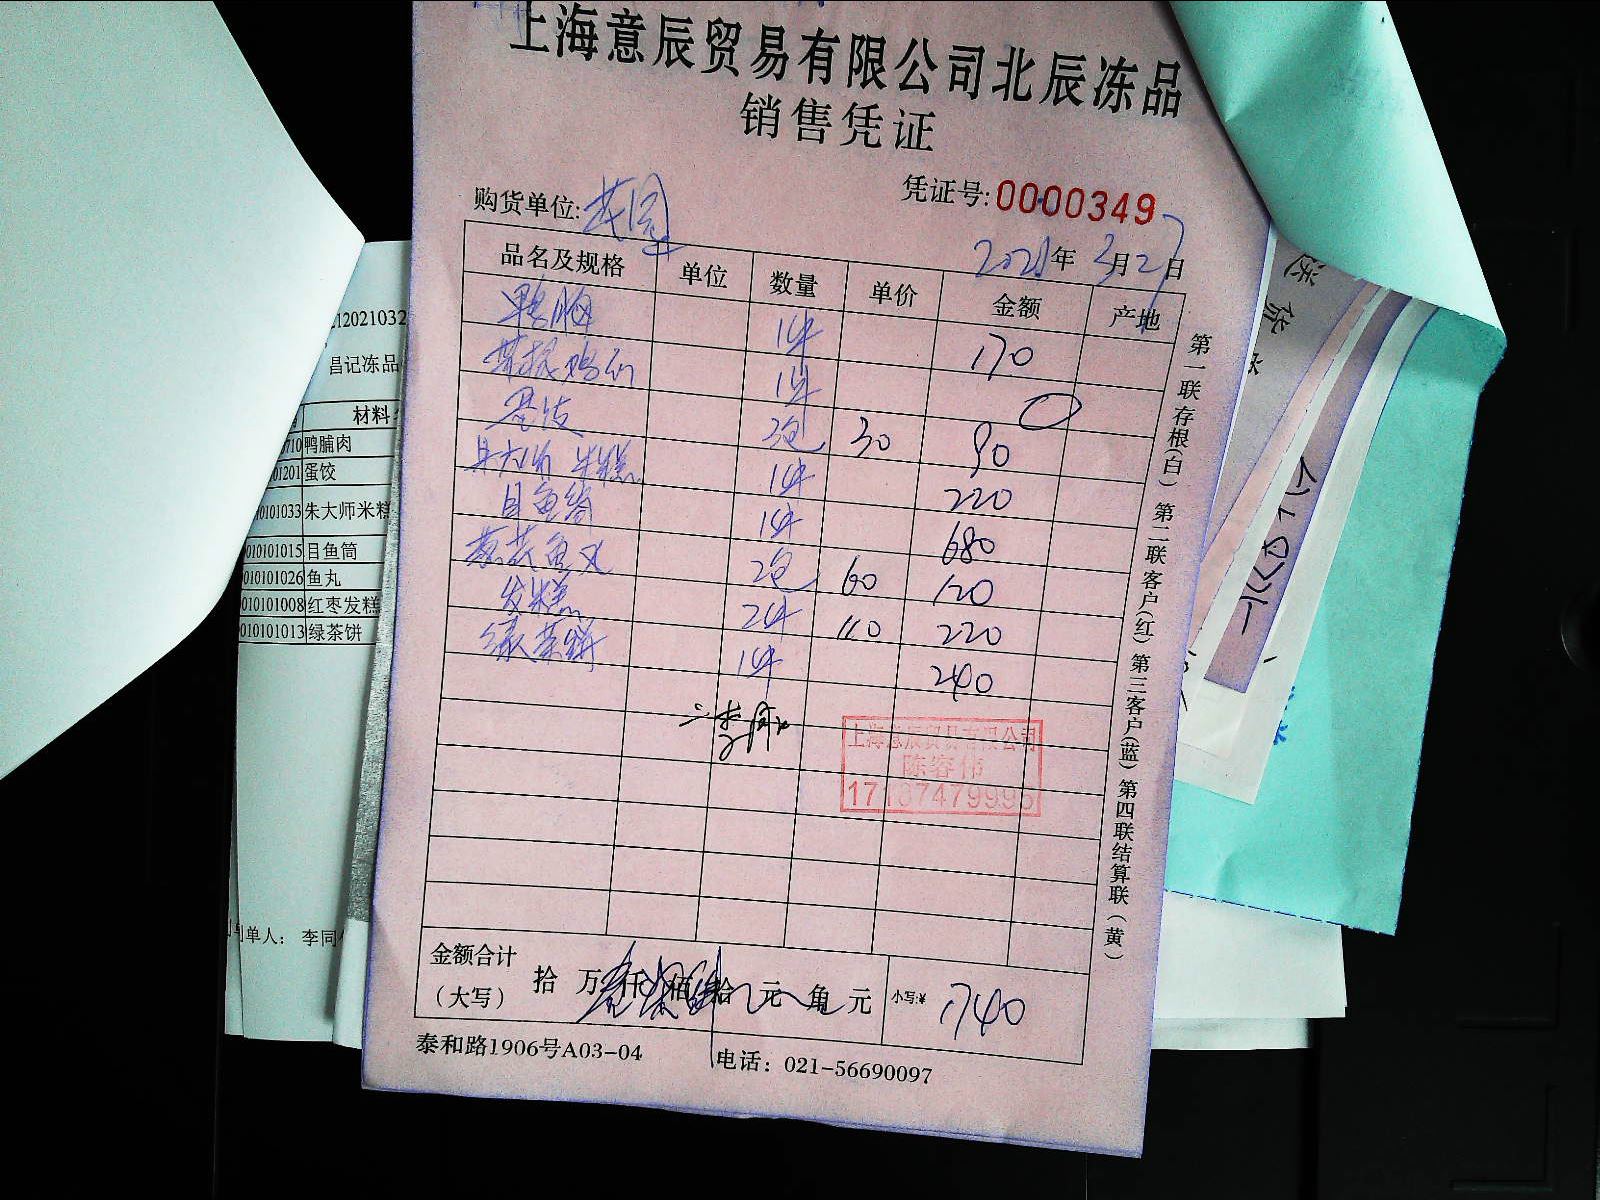 上海意辰贸易有限公司北辰冻品
销售凭证
凭证号:0000349
购货单位:
2021年3月27日
品名及规格 单位 数量 单价 金额 产地
鸭脯 1件 170
1件 0
蛋饺 3包 30 90
朱大师米糕 1件 220
目鱼筒 1件 680
鱼丸 2包 60 120
发糕 2件 110 220
绿茶饼 1件 240
上海意辰贸易有限公司
陈容伟
金额合计
(大写)
拾 万 仟 佰 拾 元 角 元
小写:¥ 1740
泰和路1906号A03-04
电话: 021-56690097
第一联存根(白) 第二联客户(红) 第三客户(蓝) 第四联结算联(黄)
昌记冻品
材料
鸭脯肉
蛋饺
朱大师米糕
010101015 目鱼筒
010101026 鱼丸
010101008 红枣发糕
010101013 绿茶饼
单人: 李同
送货